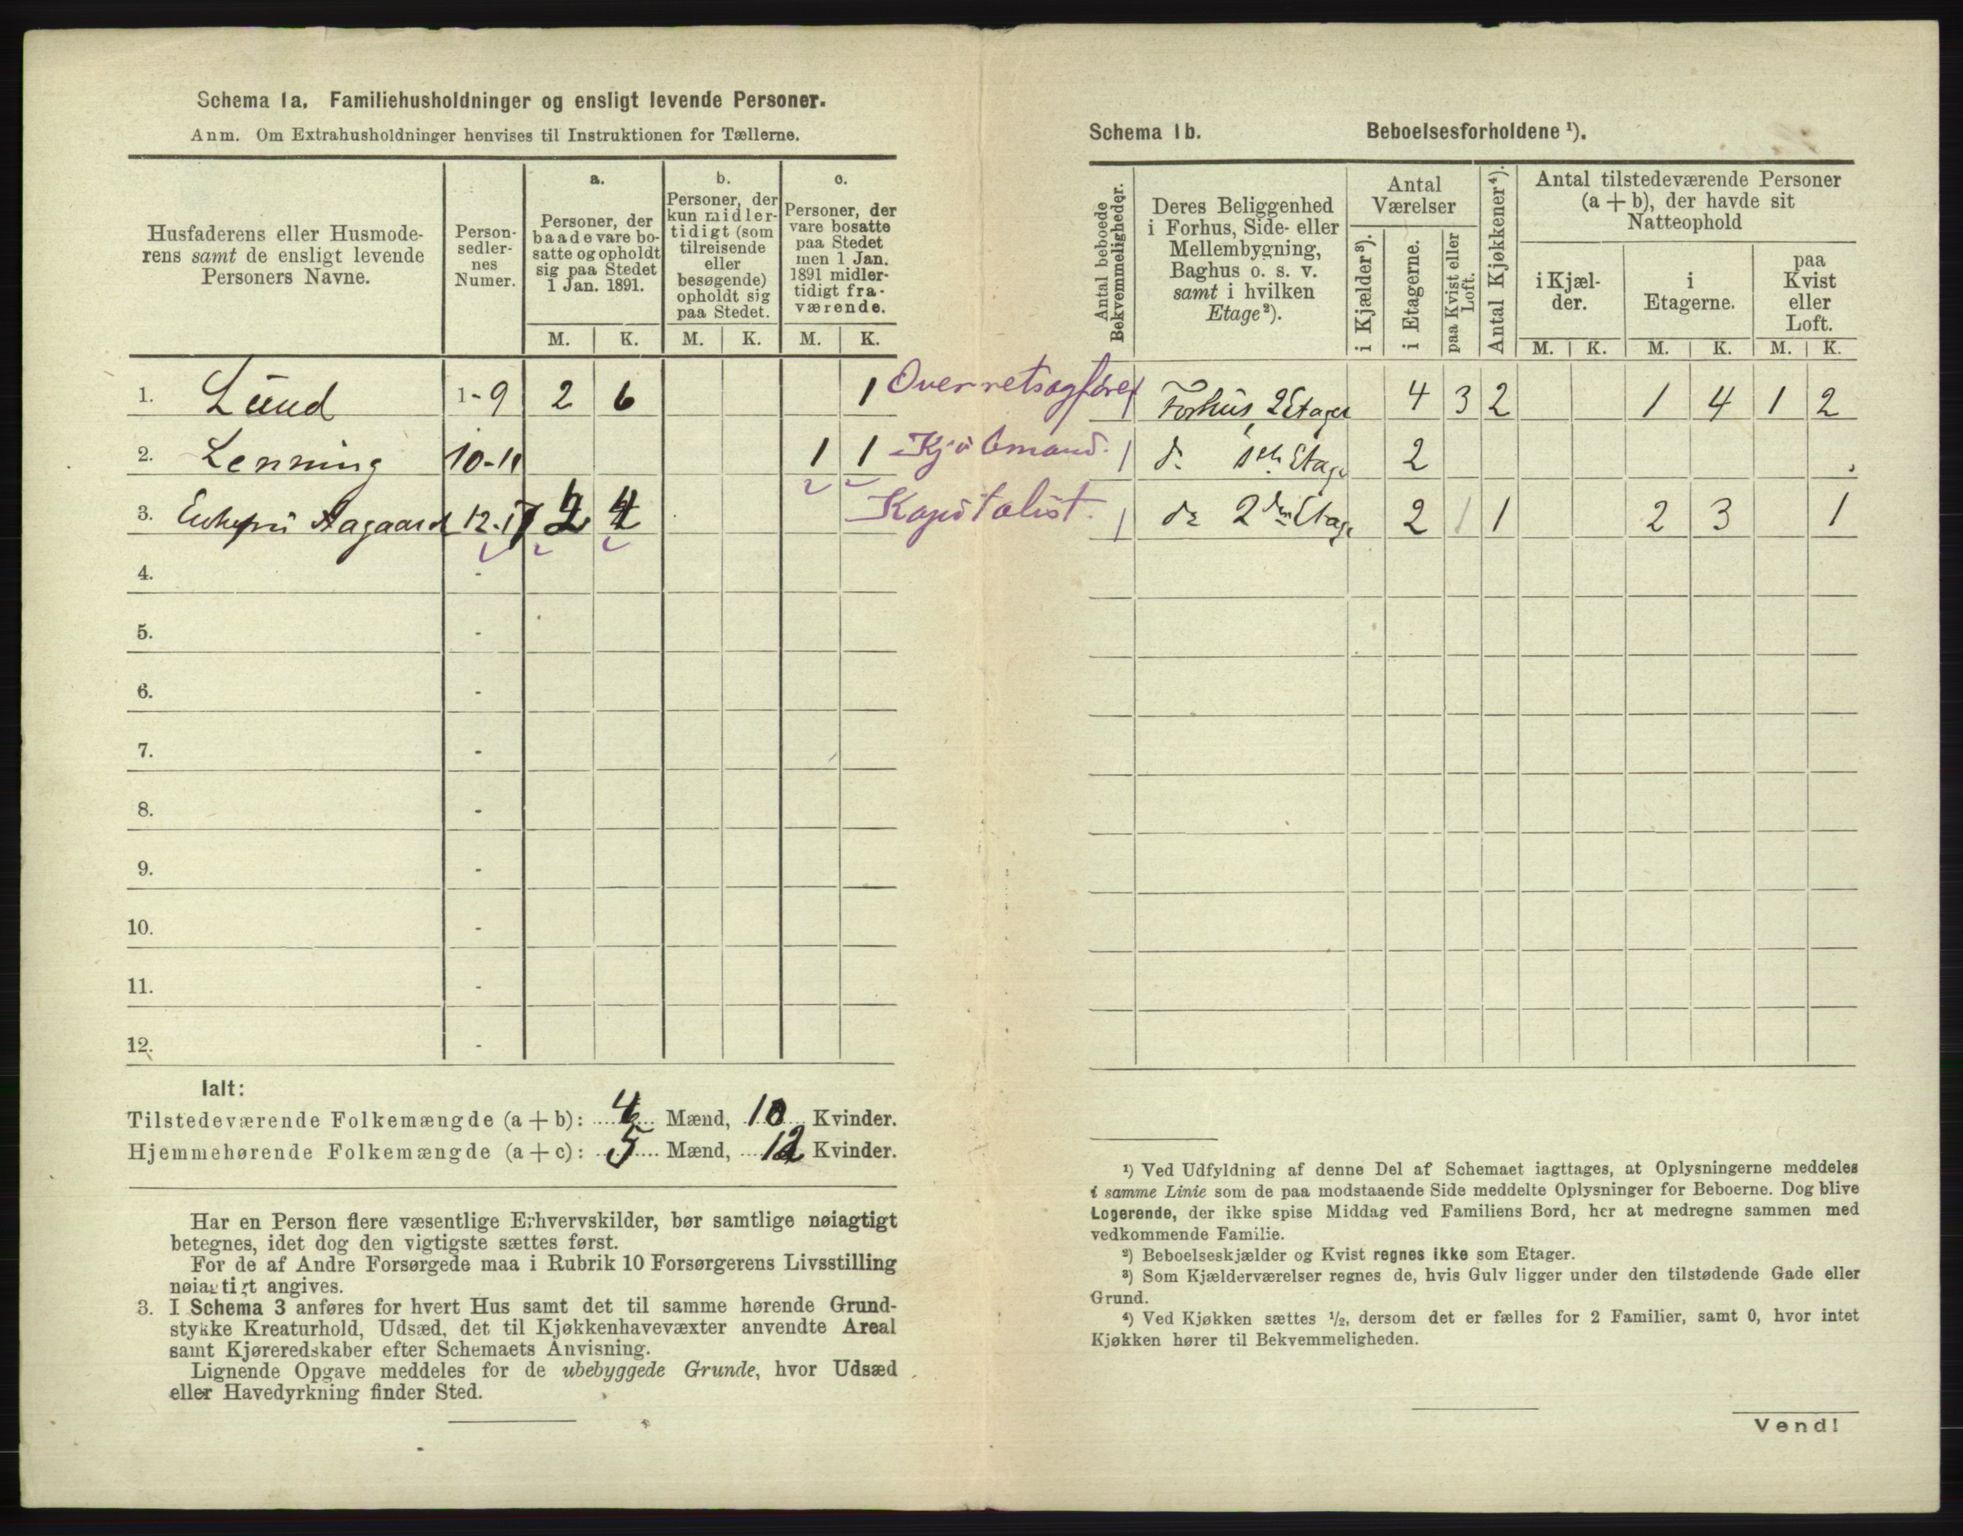 Schema 1a. Familiehusholdninger og ensligt levende Personer.
Anm. Om Extrahusholdninger henvises til Instruktionen for Tællerne.
Husfaderens eller Husmode-
rens samt de ensligt levende
Personers Navne.
Person-
sedler-
nes
Numer.
a.
Personer, der
baade vare bo-
satte og opholdt
sig paa Stedet
1 Jan. 1891.
b.
Personer, der
kun midler-
tidigt (som
tilreisende
eller
besøgende)
opholdt sig
paa Stedet.
c.
Personer, der
vare bosatte
paa Stedet
men 1 Jan.
1891 midler-
tidigt fra-
værende.
M. K. M. K. M. K.
1. Lund 1-9 2 6 1 Overretsagfører
2. Lenning 10-11 1 1 Kjøbmand.
3. Enkefru Aagaard 12-17 2 4 Kapitalist.
4. -
5. -
6. -
7. -
8. -
9. -
10. -
11. -
12. -
Ialt:
Tilstedeværende Folkemængde (a + b): 4 Mænd, 10 Kvinder.
Hjemmehørende Folkemængde (a + c): 5 Mænd, 12 Kvinder.
Har en Person flere væsentlige Erhvervskilder, bør samtlige nøiagtigt
betegnes, idet dog den vigtigste sættes først.
For de af Andre Forsørgede maa i Rubrik 10 Forsørgerens Livsstilling
nøiagtigt angives.
3. I Schema 3 anføres for hvert Hus samt det til samme hørende Grund-
stykke Kreaturhold, Udsæd, det til Kjøkkenhavevæxter anvendte Areal
samt Kjøreredskaber efter Schemaets Anvisning.
Lignende Opgave meddeles for de ubebyggede Grunde, hvor Udsæd
eller Havedyrkning finder Sted.
Schema 1b. Beboelsesforholdene ¹).
Antal beboede
Bekvemmeligheder.
Deres Beliggenhed
i Forhus, Side- eller
Mellembygning,
Baghus o. s. v.
samt i hvilken
Etage²).
Antal
Værelser
i Kjælder³).
i Etagerne.
paa Kvist eller
Loft.
Antal Kjøkkener⁴).
Antal tilstedeværende Personer
(a + b), der havde sit
Natteophold
i Kjæl-
der.
i
Etagerne.
paa
Kvist
eller
Loft.
M. K. M. K. M. K.
1 Forhus, 2 Etager 4 3 2 1 4 1 2
1 do 1ste Etage 2
1 do 2den Etage 2 1 1 2 3 1
¹) Ved Udfyldning af denne Del af Schemaet iagttages, at Oplysningerne meddeles
i samme Linie som de paa modstaaende Side meddelte Oplysninger for Beboerne. Dog blive
Logerende, der ikke spise Middag ved Familiens Bord, her at medregne sammen med
vedkommende Familie.
²) Beboelseskjælder og Kvist regnes ikke som Etager.
³) Som Kjælderværelser regnes de, hvis Gulv ligger under den tilstødende Gade eller
Grund.
⁴) Ved Kjøkken sættes ½, dersom det er fælles for 2 Familier, samt 0, hvor intet
Kjøkken hører til Bekvemmeligheden.
Vend!